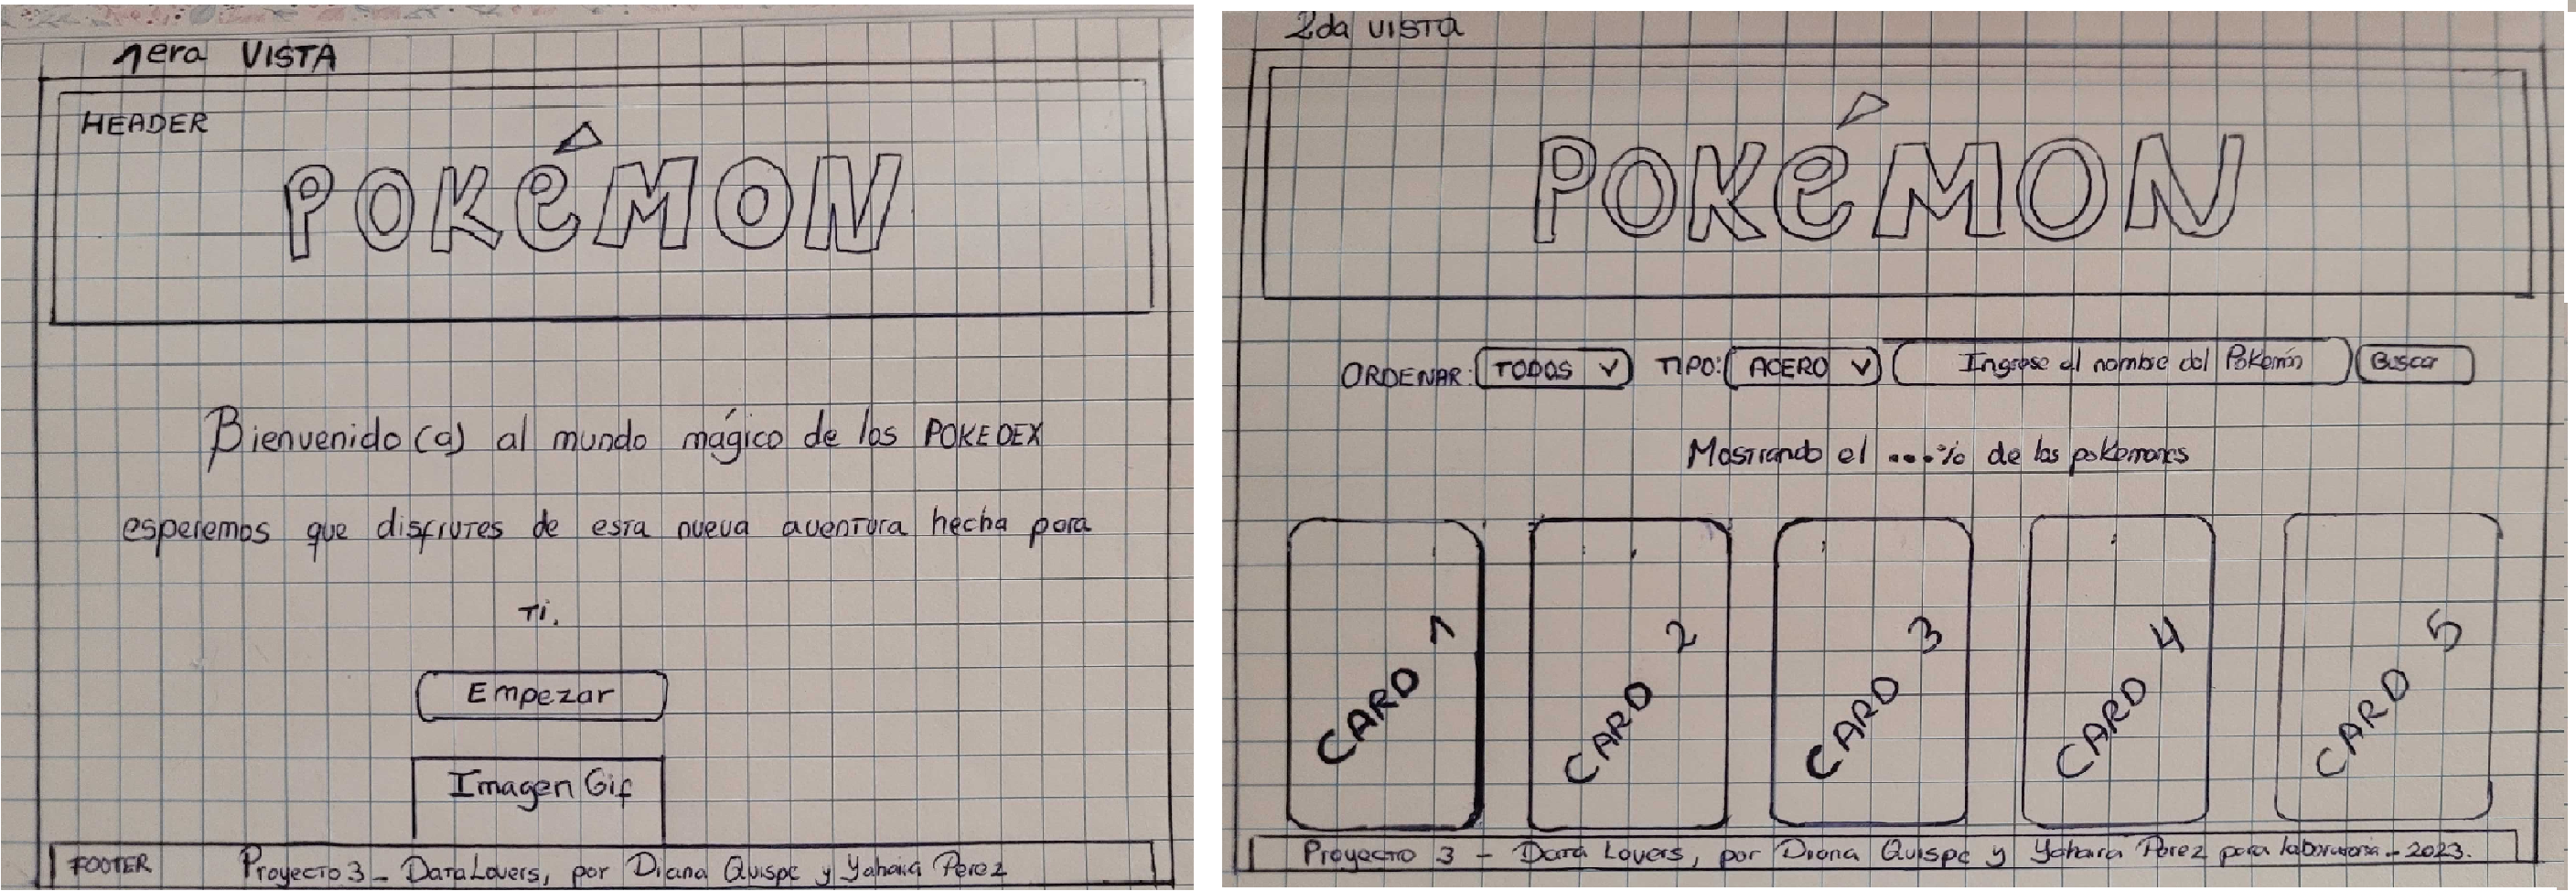 1era VISTA
HEADER
POKéMON
Bienvenido(a) al mundo mágico de los POKEDEX
esperemos que disfrutes de esta nueva aventura hecha para
Ti.
Empezar
Imagen Gif
FOOTER Proyecto 3 - DataLovers, por Diana Quispe y Yahaira Perez
2da VISTA
POKéMON
ORDENAR: TODOS V TIPO: ACERO V Ingrese el nombre del Pokemón Buscar
Mostrando el ...% de los pokemones
CARD 1
CARD 2
CARD 3
CARD 4
CARD 5
Proyecto 3 - Data Lovers, por Diana Quispe y Yahaira Perez para laboratoria - 2023.